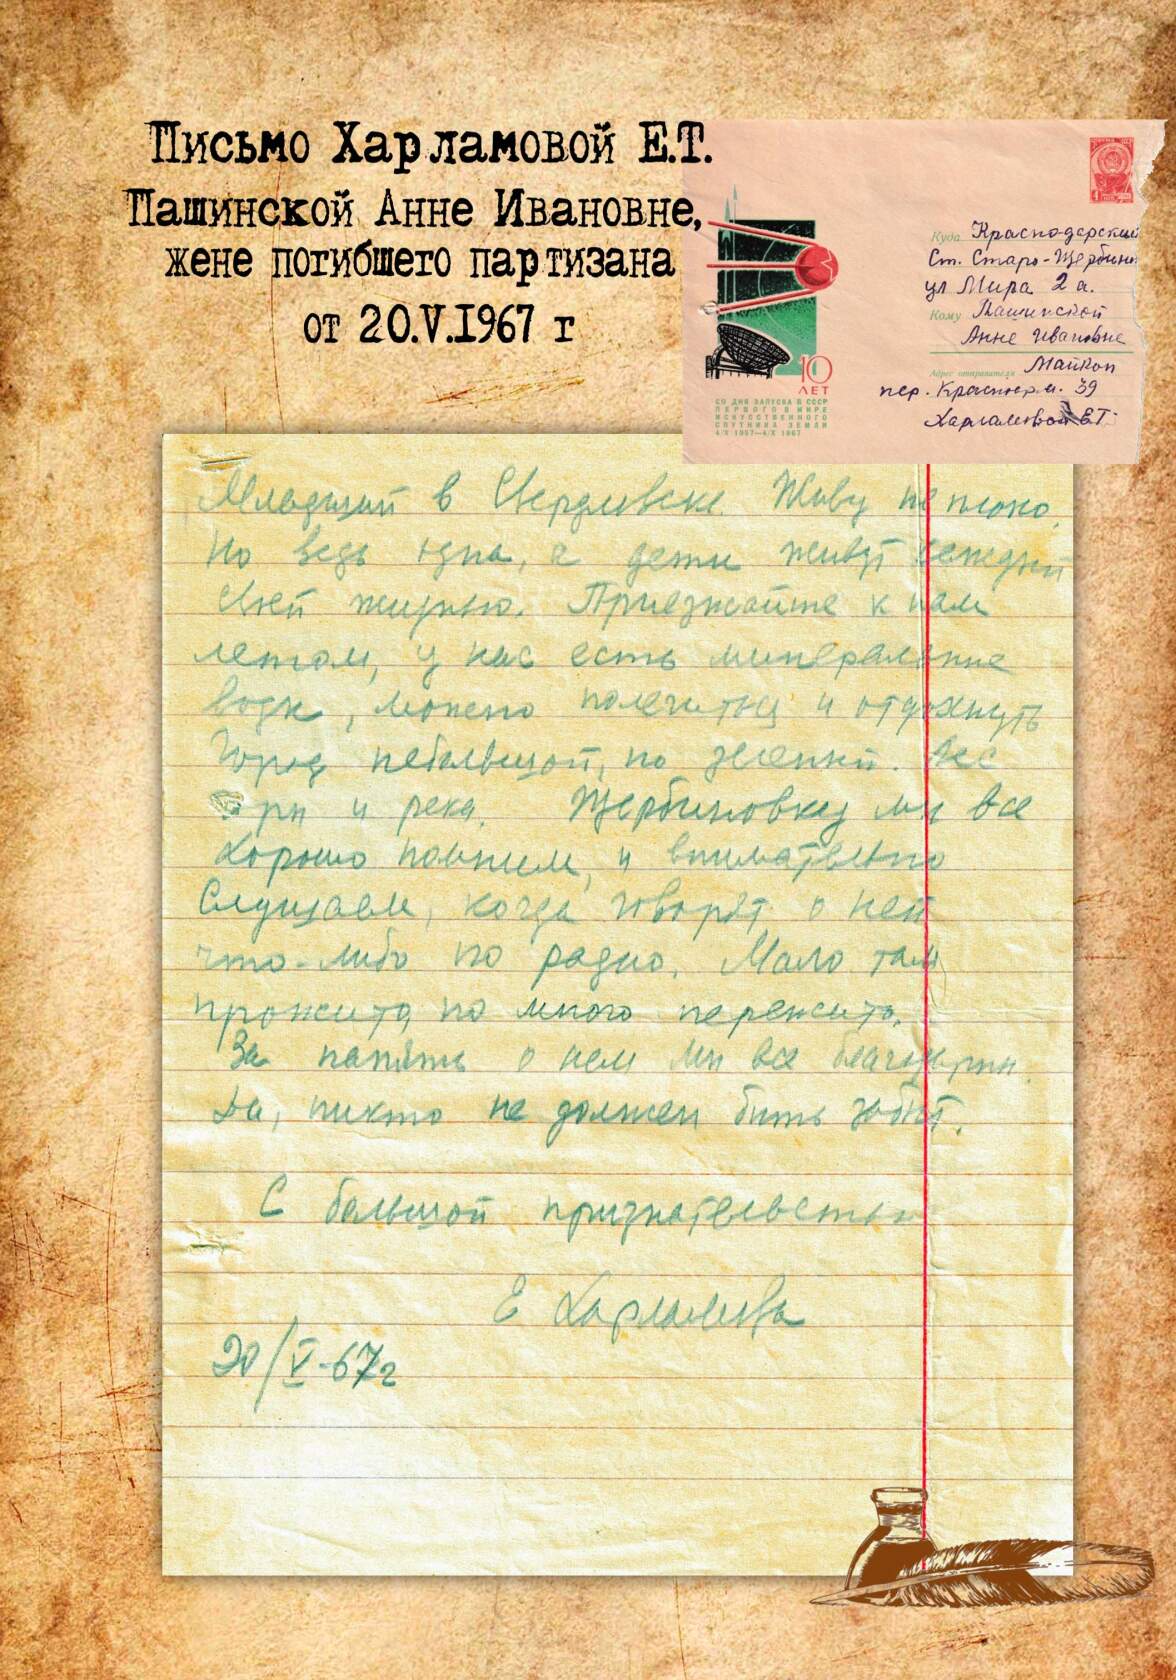 Письмо Харламовой Е.Т.
Пашинской Анне Ивановне,
жене погибшего партизана
от 20.V.1967 г
Куда Краснодарский
Ст. Старо-Щербинов
ул Мира 2 а.
Кому Пашинской
Анне Ивановне
Адрес отправителя Майкоп
пер. Красноарм. 39
Харламовой Е.Т.
10
ЛЕТ
СО ДНЯ ЗАПУСКА В СССР
ПЕРВОГО В МИРЕ
ИСКУССТВЕННОГО
СПУТНИКА ЗЕМЛИ
4/X 1957—4/X 1967
Младший в Свердловске. Живу не плохо.
Но ведь одна, а дети живут каждый
своей жизнью. Приезжайте к нам
летом, у нас есть минеральные
воды, можно полечиться и отдохнуть
Город небольшой, но зеленый. Лес
горы и река. Щербиновку мы все
хорошо помним, и внимательно
слушаем, когда говорят о ней
что-либо по радио. Мало там
прожито, но много пережито.
За память о нем мы все благодарны.
Да, никто не должен быть забыт.
С большой признательностью
Е Харламова
20/V-67г